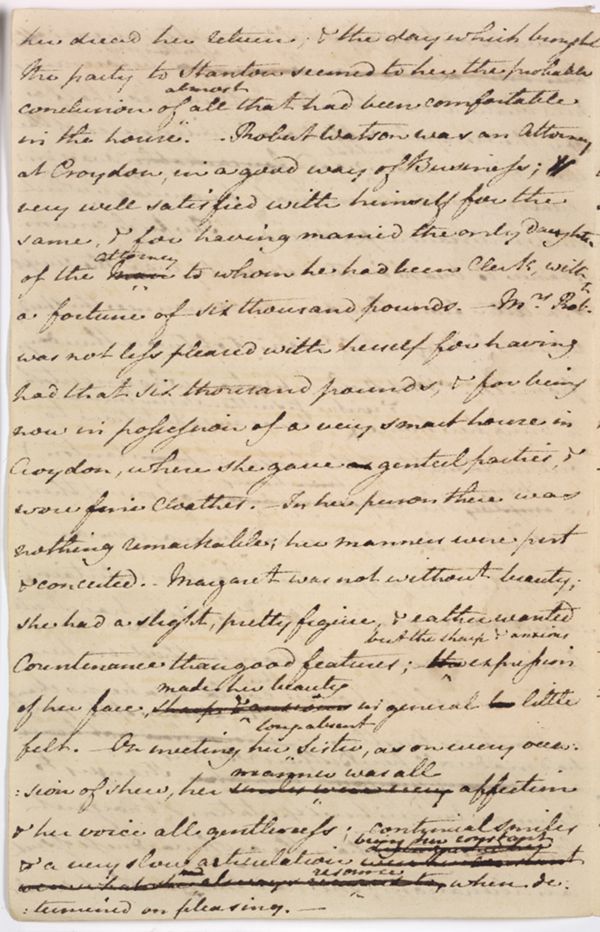 her dread her return; & the day which brought
the party to Stanton seemed to her the probable
almost
conclusion of all that had been comfortable
in the house. - Robert Watson was an Attorney
at Croydon, in a good way of Business;
very well satisfied with himself for the
same, & for having married the only daughter
attorney
of the to whom he had been Clerk, with
a fortune of six thousand pounds. - Mrs. Robt.
was not less pleased with herself for having
had that six thousand pounds, & for being
now in possession of a very smart house in
Croydon, where she gave genteel parties, &
wore fine cloathes. - In her person there was
nothing remarkable; her manners were pert
& conceited. - Margaret was not without beauty;
she had a slight, pretty figure, & rather wanted
but the sharp & anxious
Countenance than good features; - the expression
made her beauty
of her face, sharp & anxious in general to little
long absent
felt. - On meeting her Sister, as on every occa:
manner was all
:sion of shew, her smiles were very affection
& her voice all gentleness; continual smiles
being her constant
& a very slow articulation were her constant
and resource
were what she always resorted to, when de:
:termined on pleasing. -